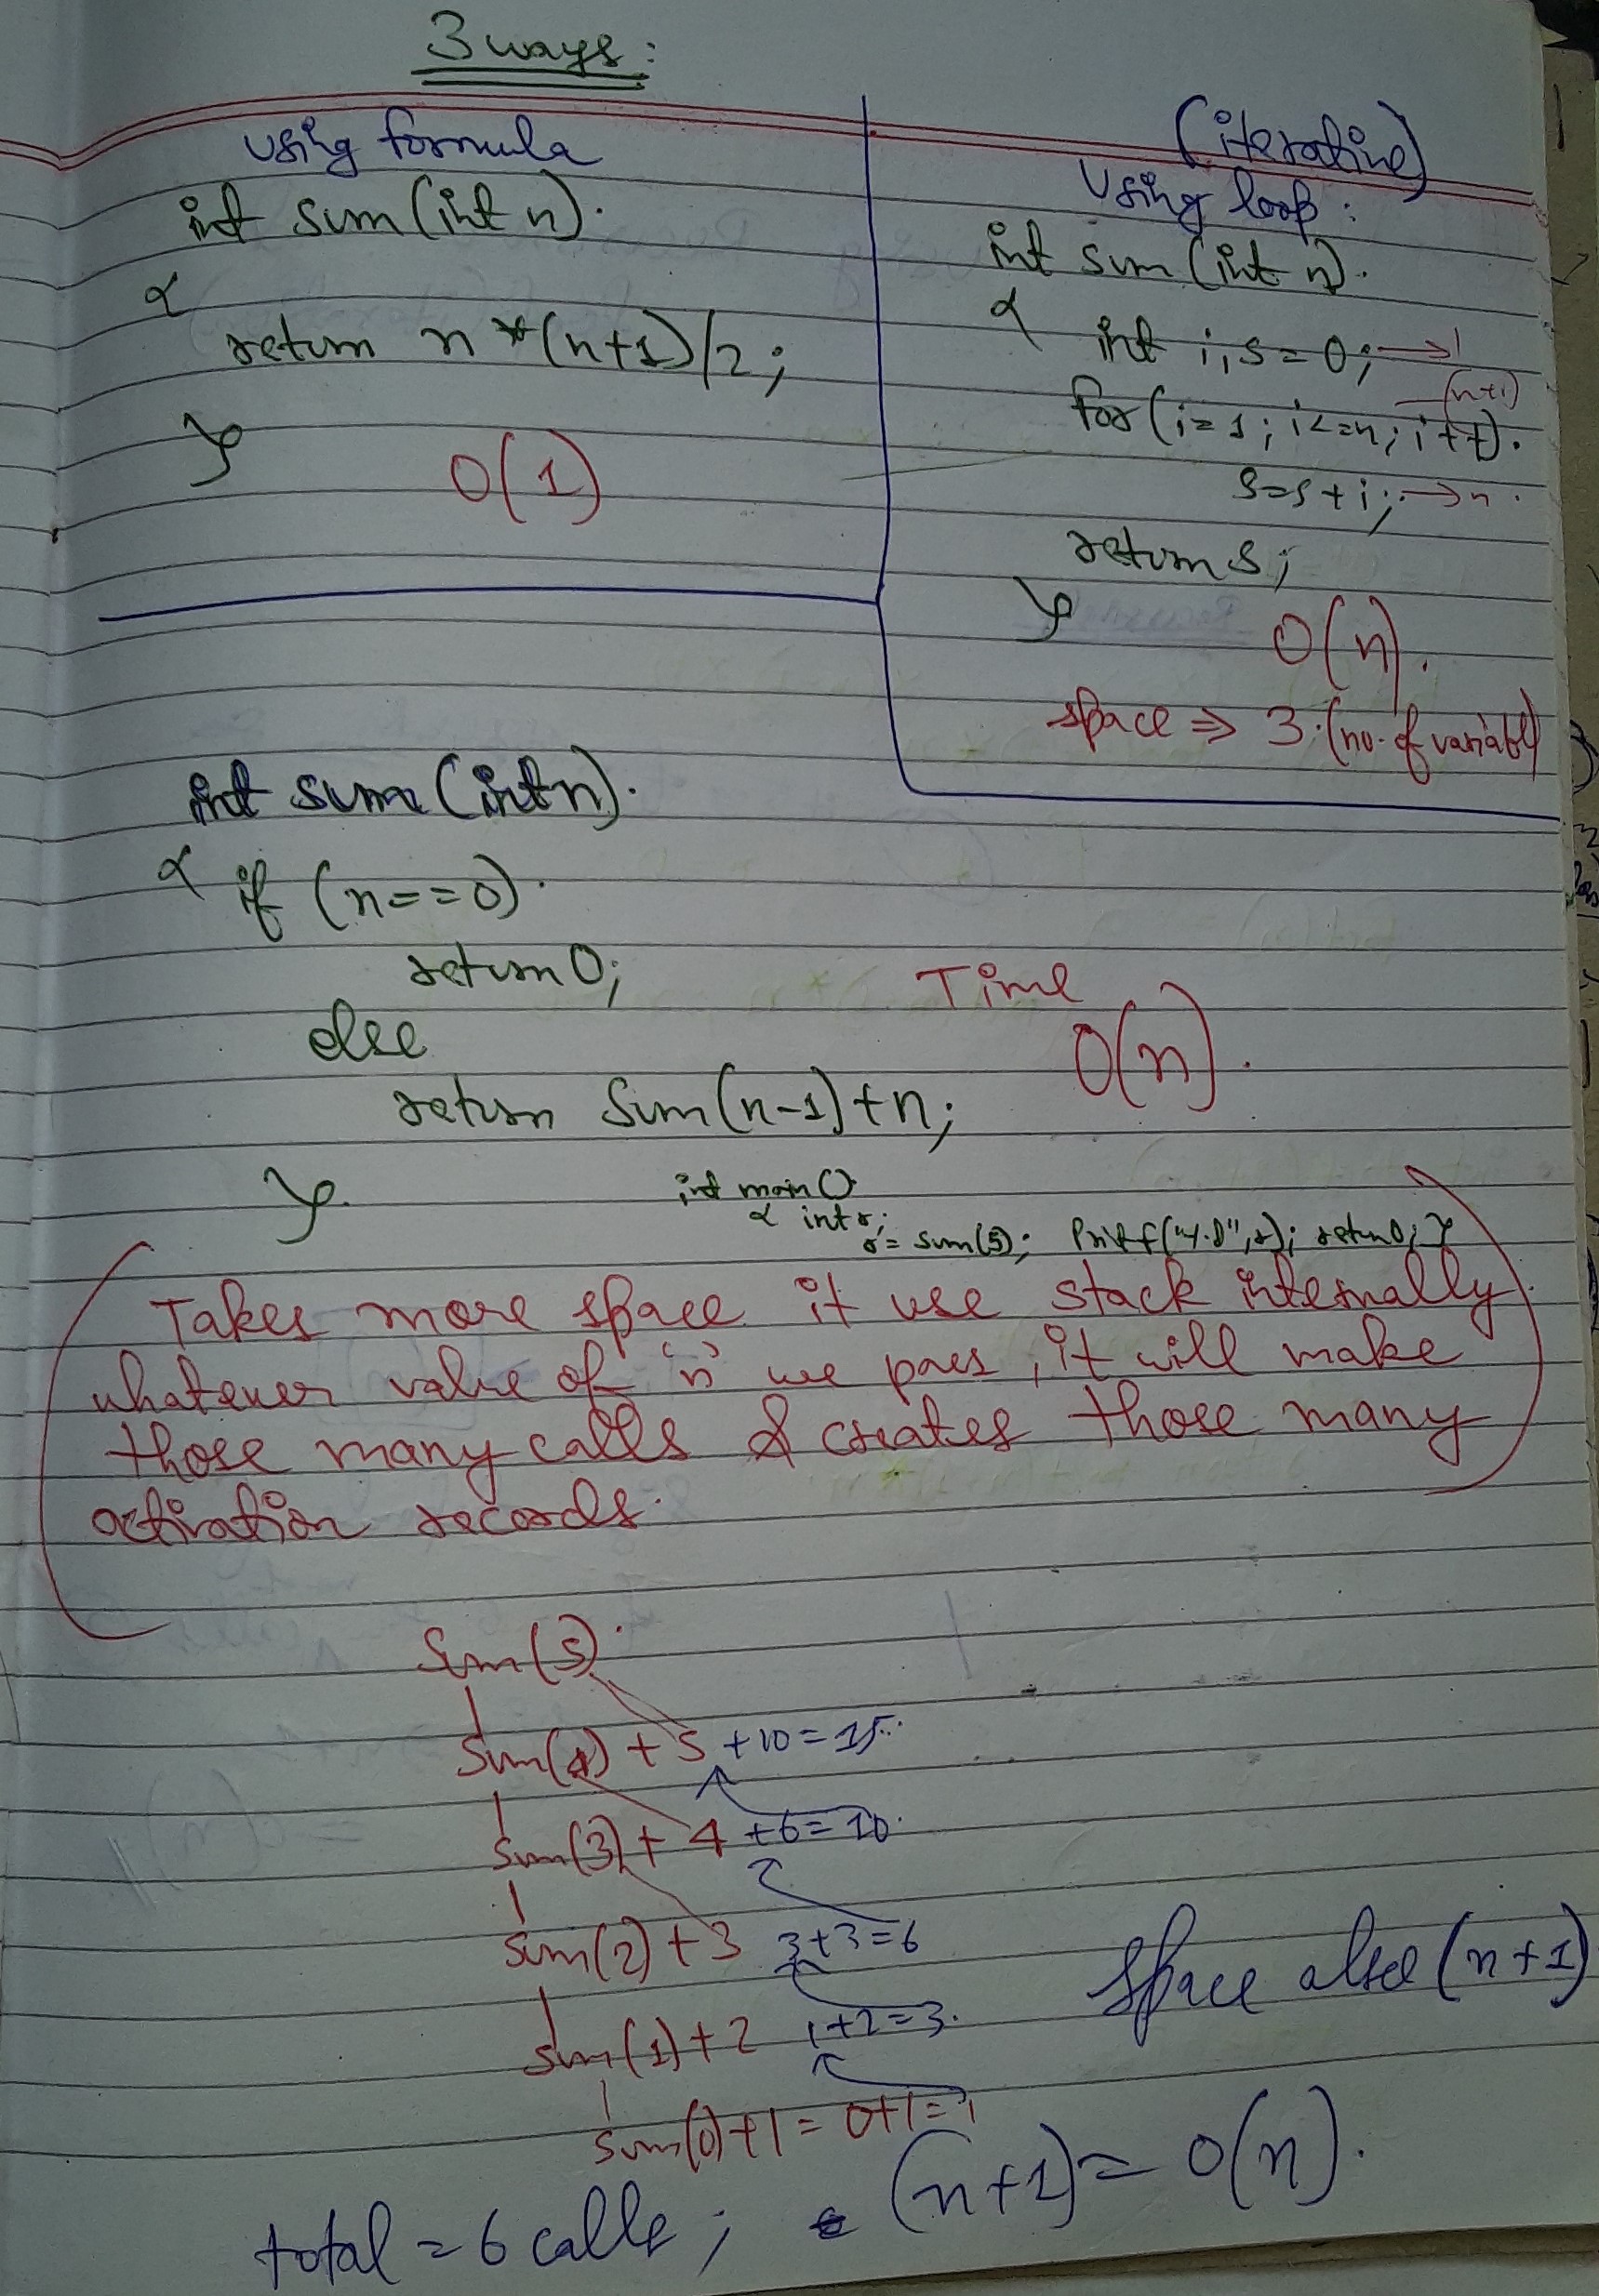 3 ways:
using formula
int sum(int n).
{
return n*(n+1)/2;
}
O(1)
(iterative)
Using loop:
int sum(int n).
{ int i,s=0; → 1
(n+1)
for(i=1; i<=n; i++).
s=s+i; → n.
return s;
}
O(n).
space ⇒ 3.(no. of variable)
int sum(int n).
{ if (n==0).
return 0;
else
return sum(n-1)+n;
}.
Time
O(n).
int main()
{ int r;
r= sum(5); Printf("%d",r); return 0; }
(Takes more space it use stack internally.
whatever value of 'n' we pass, it will make
those many calls & creates those many
activation records.)
Sum(5).
Sum(4) + 5 +10=15.
Sum(3) + 4 +6=10.
Sum(2) + 3 3+3=6
Sum(1)+2 1+2=3.
Sum(0)+1 = 0+1=1
Space also (n+1)
total = 6 calls; (n+1) = O(n).